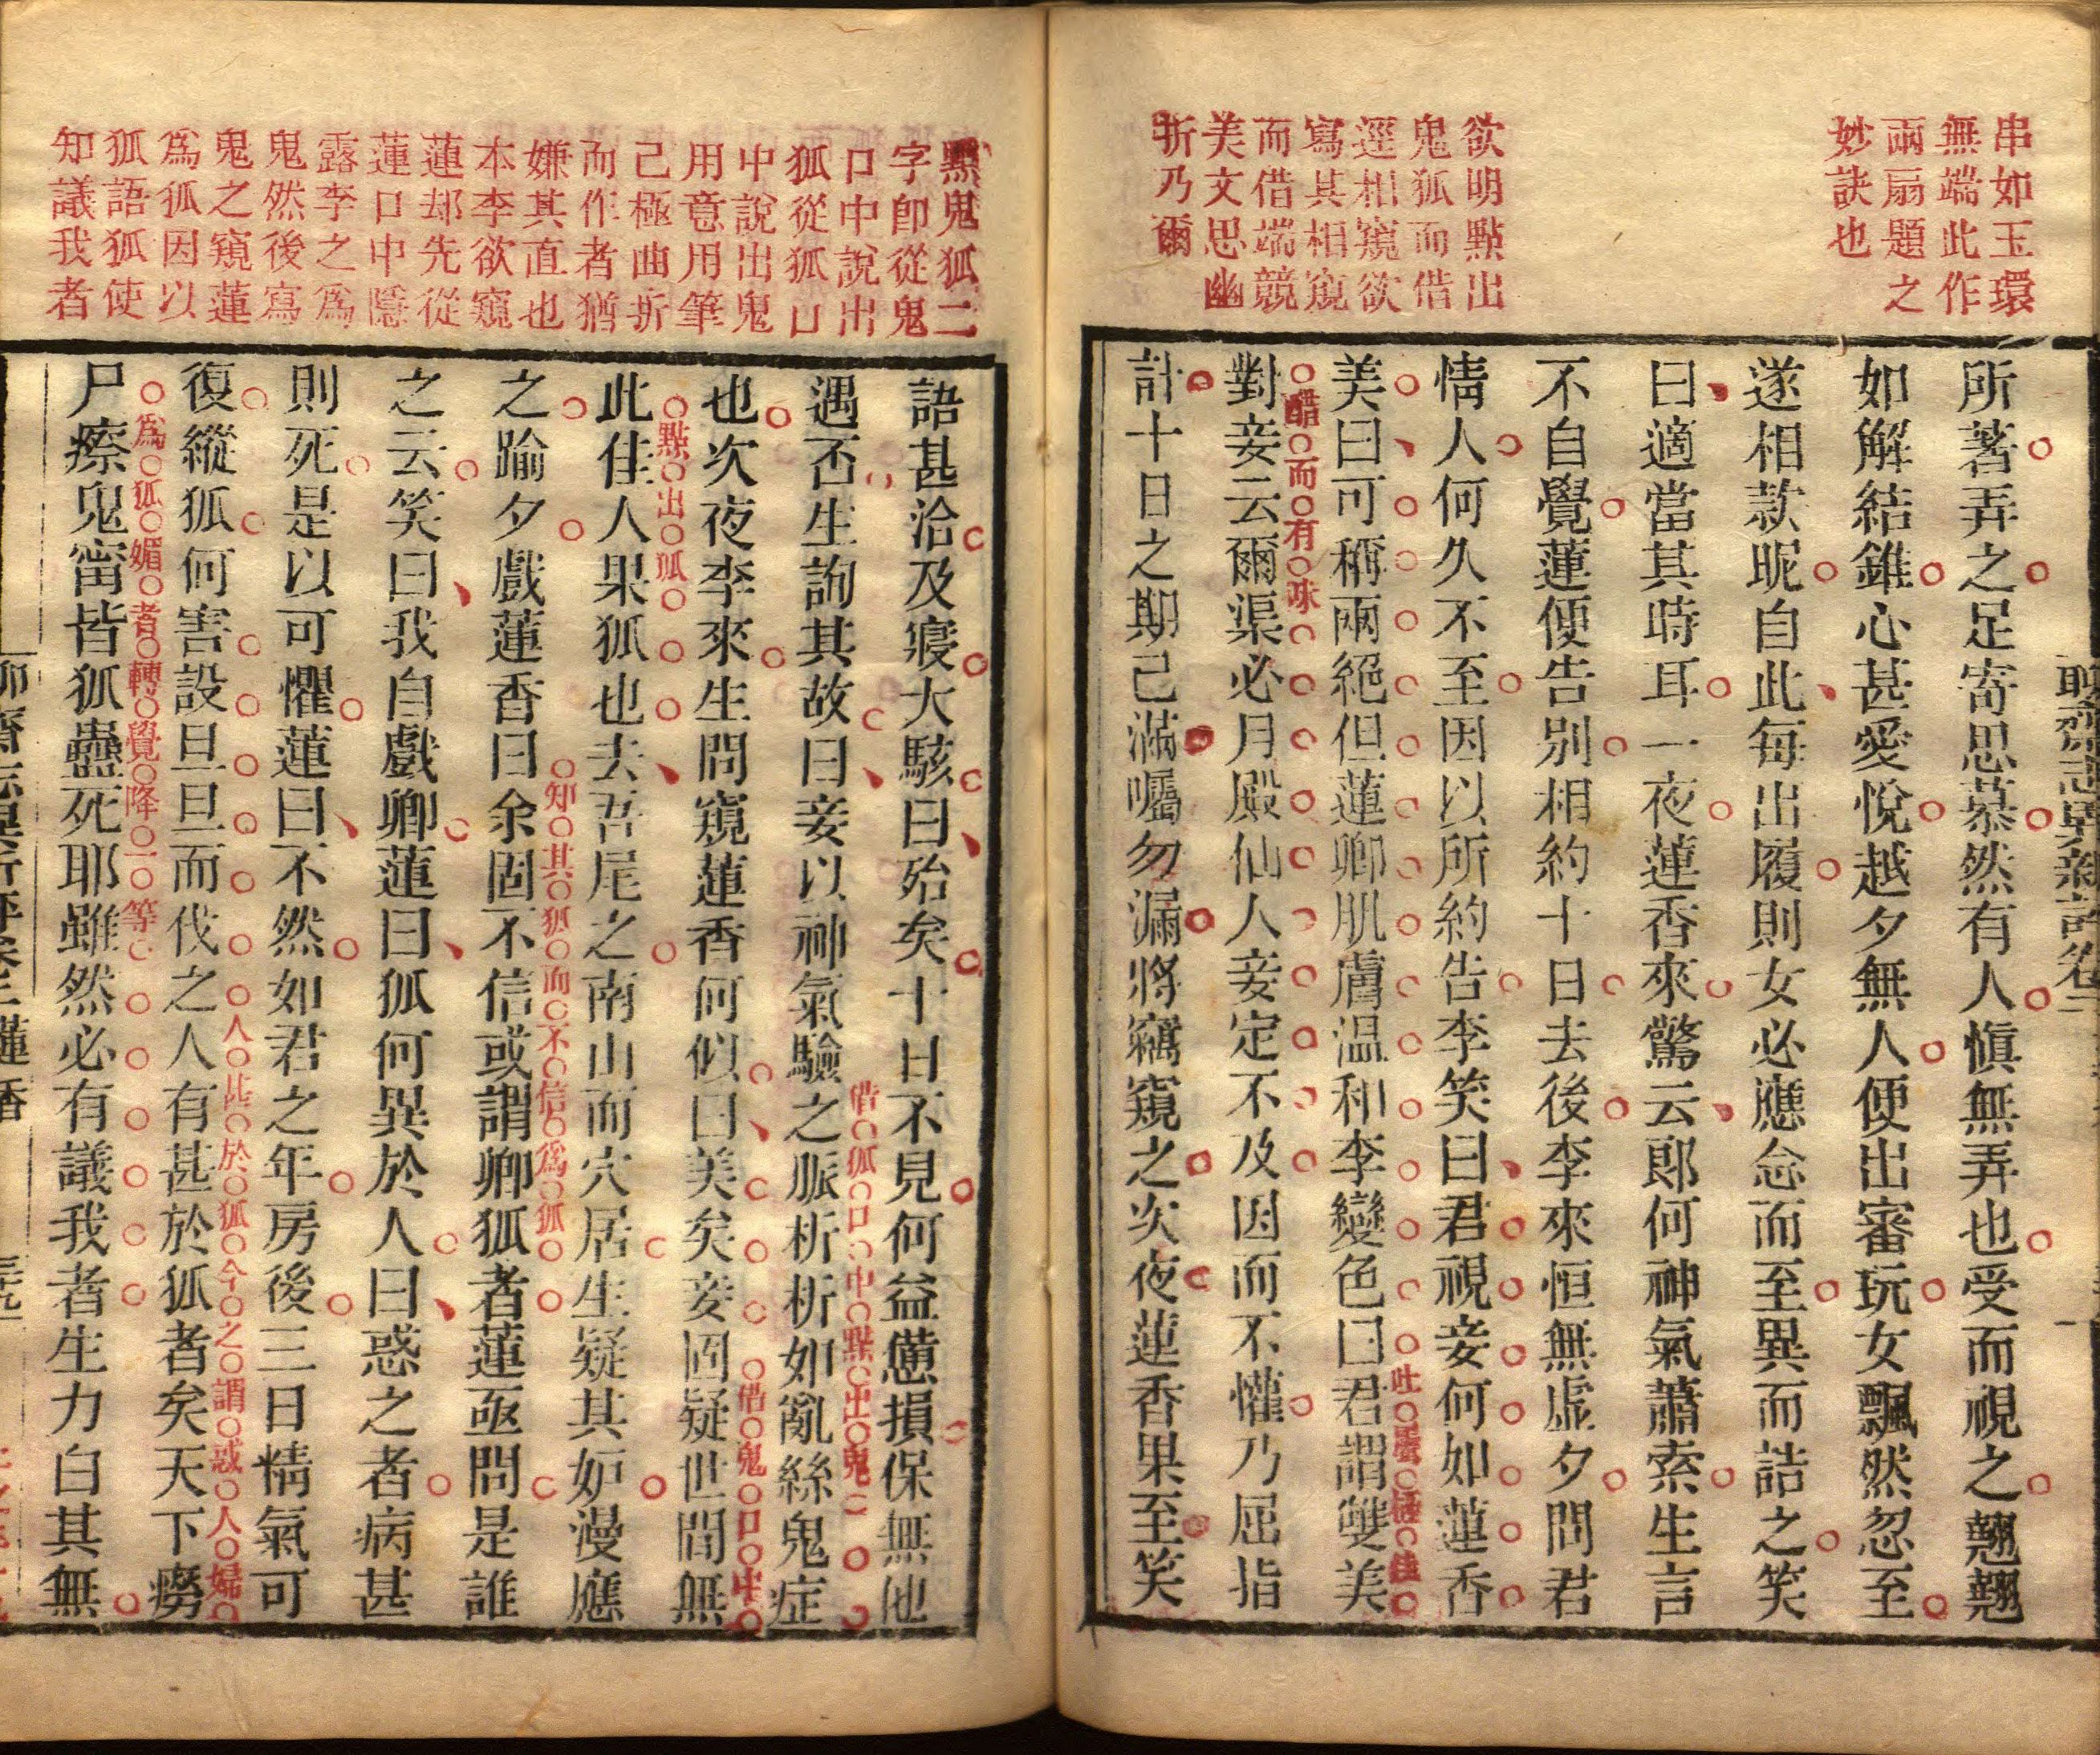 串如玉環
無端此作
兩扇題之
妙訣也
欲明點出
鬼狐而借
逕相窺欲
寫其相窺
而借端競
美文思幽
折乃爾
所著弄之足寄思慕然有人愼無弄也受而視之翹翹
如解結錐心甚愛悅越夕無人便出審玩女飄然忽至
遂相款昵自此每出履則女必應念而至異而詰之笑
曰適當其時耳一夜蓮香來驚云郎何神氣蕭索生言
不自覺蓮便告別相約十日去後李來恒無虛夕問君
情人何久不至因以所約告李笑曰君視妾何如蓮香
美曰可稱兩絕但蓮卿肌膚温和李變色曰君謂雙美
吐屬極佳
對妾云爾渠必月殿仙人妾定不及因而不懽乃屈指
醋而有味
計十日之期己滿囑勿漏將竊窺之次夜蓮香果至笑
點鬼狐二
字卽從鬼
口中說出
狐從狐口
中說出鬼
用意用筆
己極曲折
而作者猶
嫌其直也
本李欲窺
蓮却先從
蓮口中隱
露李之爲
鬼然後寫
鬼之窺蓮
爲狐因以
狐語狐使
知議我者
語甚洽及寢大駭曰殆矣十日不見何益憊損保無他
遇否生詢其故曰妾以神氣驗之脈析析如亂絲鬼症
借狐口中點出鬼
也次夜李來生問窺蓮香何似曰美矣妾固疑世間無
借鬼口中
此佳人果狐也去吾尾之南山而穴居生疑其妒漫應
點出狐
之踰夕戲蓮香曰余固不信或謂卿狐者蓮亟問是誰
知其狐而不信爲狐
之云笑曰我自戲卿蓮曰狐何異於人曰惑之者病甚
則死是以可懼蓮曰不然如君之年房後三日精氣可
復縱狐何害設旦旦而伐之人有甚於狐者矣天下癆
人甚於狐今之謂惑人婦
尸瘵鬼甯皆狐蠱死耶雖然必有議我者生力白其無
爲狐媚者轉覺降一等